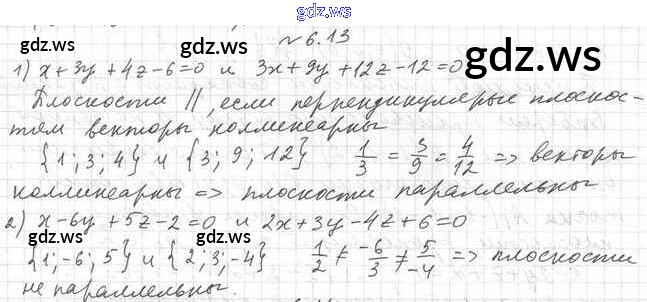 gdz.ws
gdz.ws gdz.ws
№6.13
1) x+3y+4z-6=0 и 3x+9y+12z-12=0
Плоскости ||, если перпендикулярные плоскос-
тям векторы коллинеарны
{1; 3; 4} и {3; 9; 12} 1/3 = 3/9 = 4/12 => векторы
коллинеарны => плоскости параллельны
2) x-6y+5z-2=0 и 2x+3y-4z+6=0
gdz.ws gdz.ws
{1; -6; 5} и {2; 3; -4} 1/2 ≠ -6/3 ≠ 5/-4 => плоскости
не параллельны.
gdz.ws